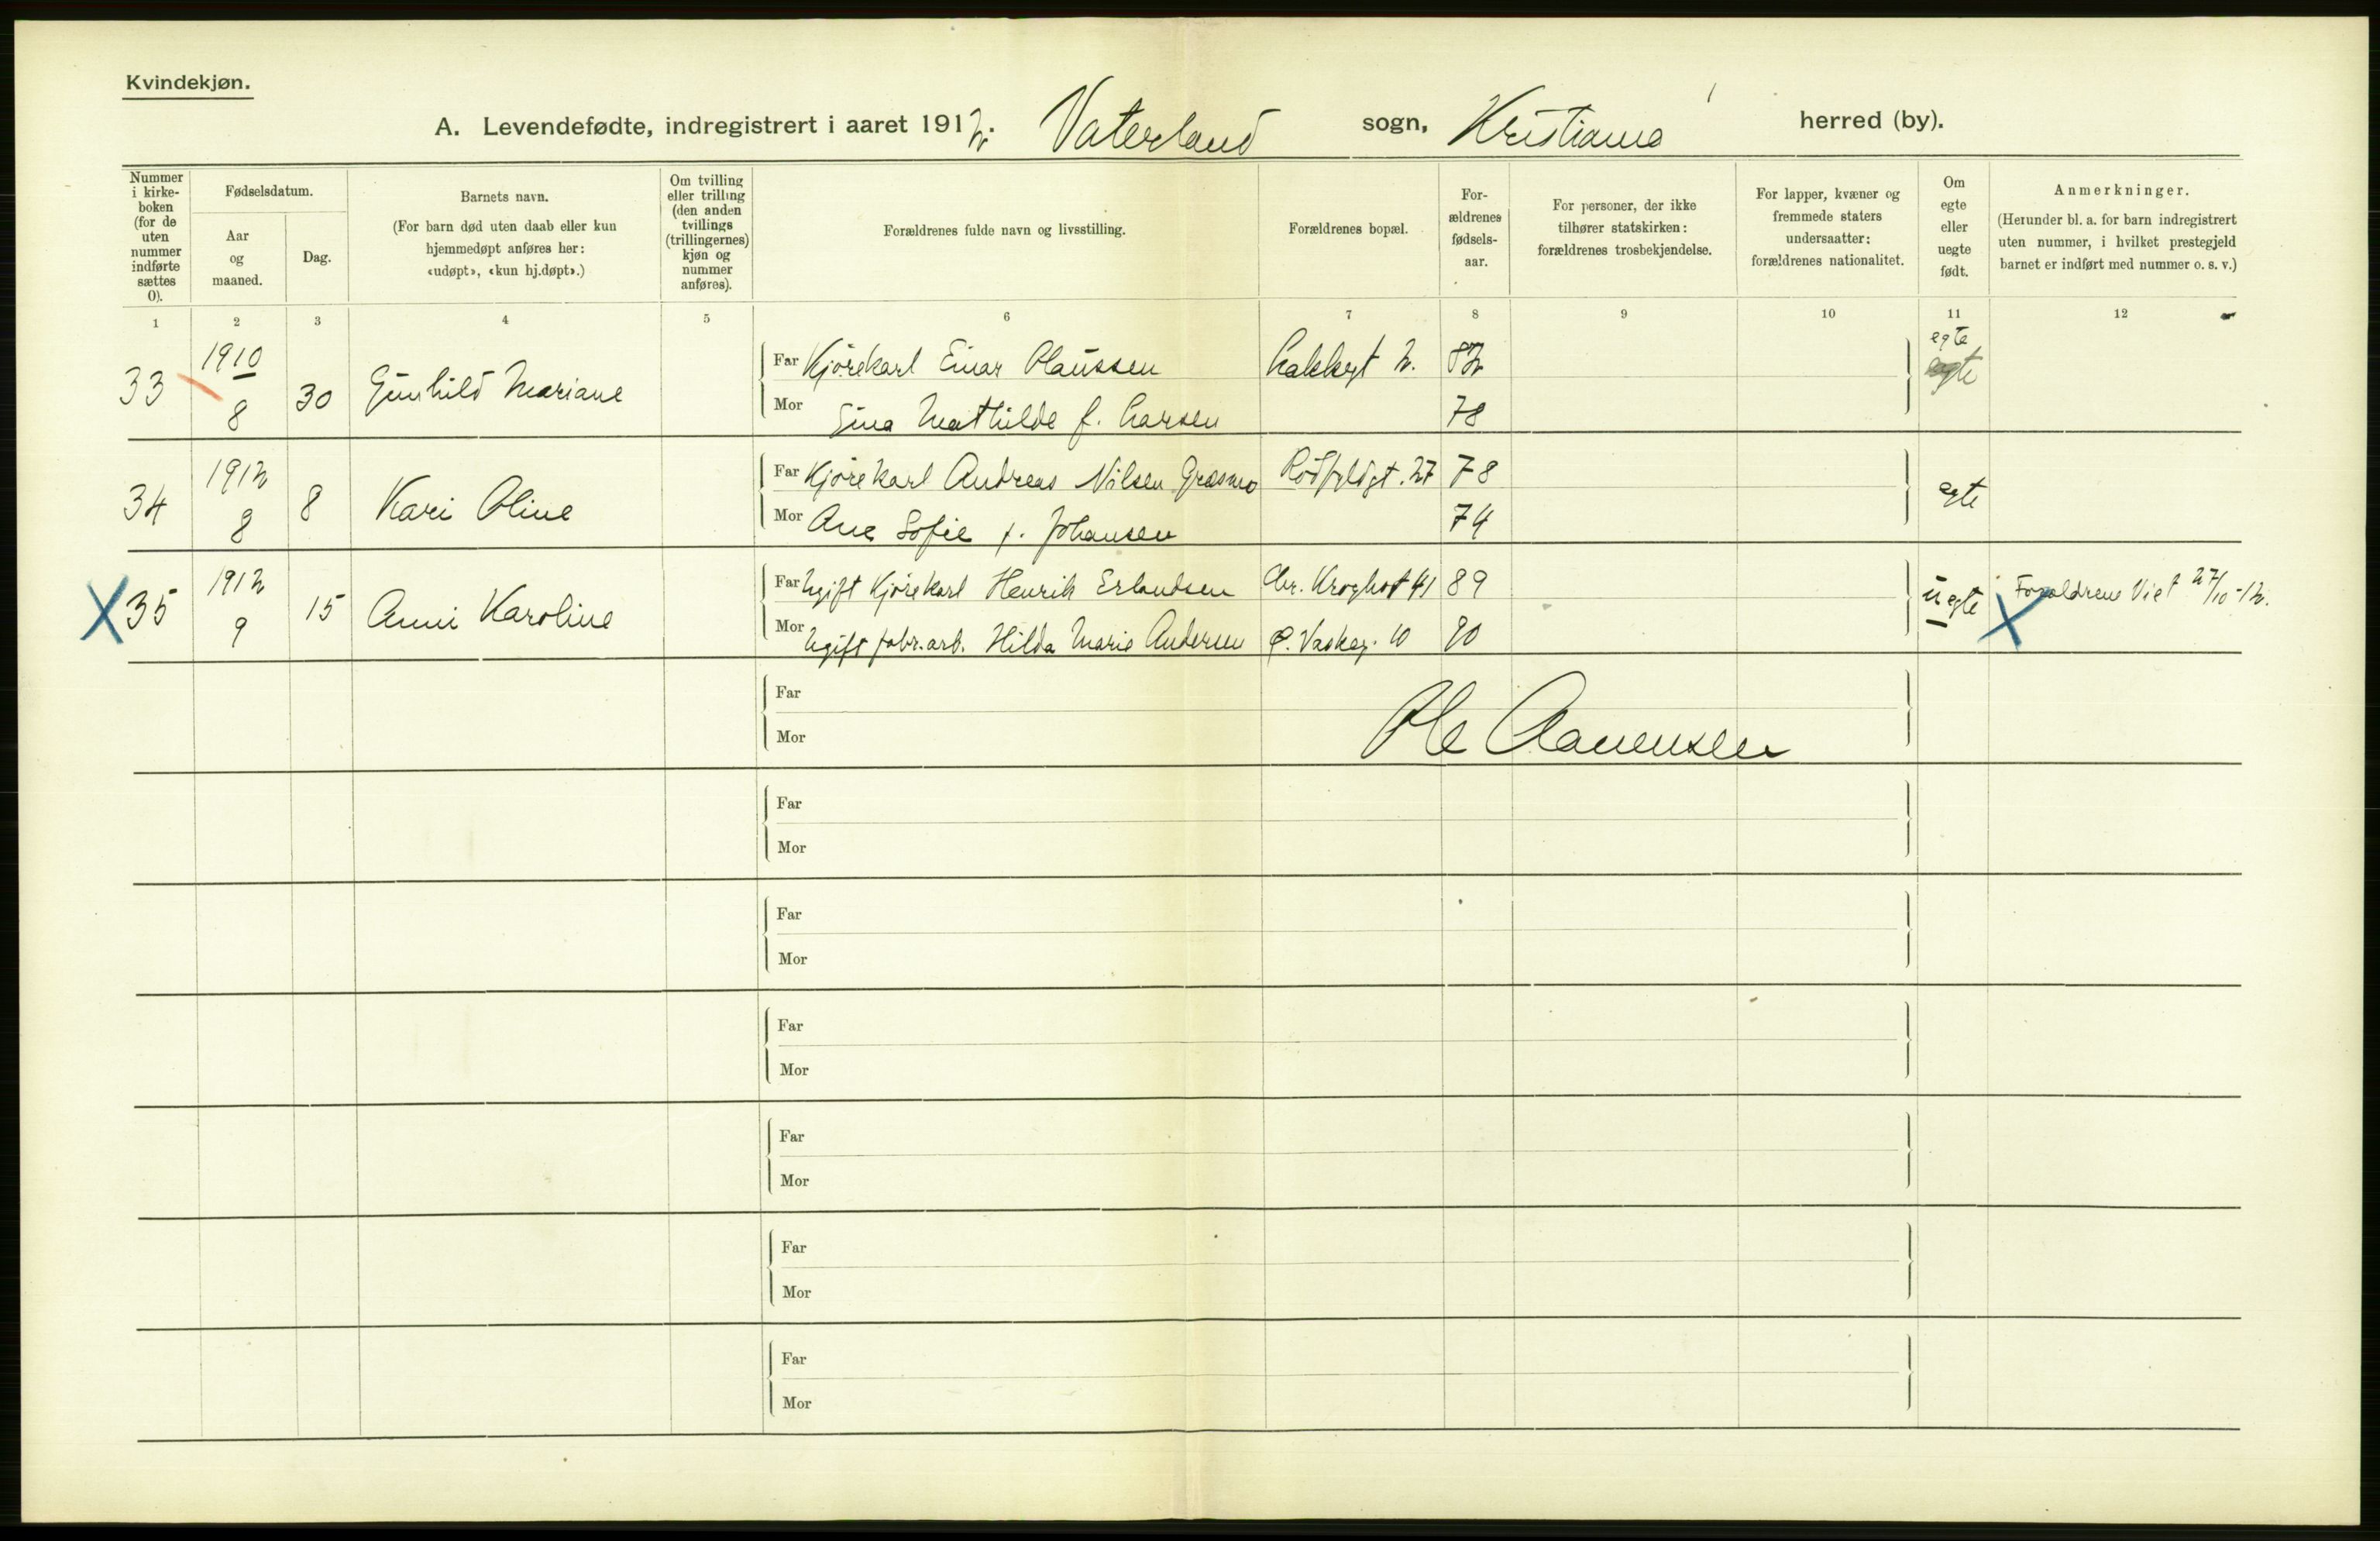 Kvindekjøn.
A. Levendefødte, indregistrert i aaret 1912. Vaterland sogn, Kristiania herred (by).
Nummer i kirke-boken (for de uten nummer indførte sættes 0).
Fødselsdatum.
Aar og maaned.
Dag.
Barnets navn.
(For barn død uten daab eller kun hjemmedøpt anføres her: «udøpt», «kun hj.døpt».)
Om tvilling eller trilling (den anden tvillings (trillingernes) kjøn og nummer anføres).
Forældrenes fulde navn og livsstilling.
Forældrenes bopæl.
For-ældrenes fødsels-aar.
For personer, der ikke tilhører statskirken: forældrenes trosbekjendelse.
For lapper, kvæner og fremmede staters undersaatter: forældrenes nationalitet.
Om egte eller uegte født.
Anmerkninger.
(Herunder bl. a. for barn indregistrert uten nummer, i hvilket prestegjeld barnet er indført med nummer o. s. v.)
1 2 3 4 5 6 7 8 9 10 11 12
33 1910 8 30 Gunhild Mariane
Far Kjørekarl Einar Olaussen Lakkegt 2. 82 egte egte
Mor Gina Mathilde f. Larsen 78
34 1912 8 8 Kari Oline
Far Kjørekarl Andreas Nilsen Græsmo Rødfyldgt. 27 78 egte
Mor Ane Sofie f. Johansen 74
X 35 1912 9 15 Anni Karoline
Far Ugift Kjørekarl Henrik Erlandsen Chr. Kroghsgt 41 89 uegte X Forældrene Viet 27/10-12.
Mor Ugift fabr.arb. Hilda Marie Andersen Ø. Vaskeg. 10 90
Far
Mor
Ole Aanensen
Far
Mor
Far
Mor
Far
Mor
Far
Mor
Far
Mor
Far
Mor